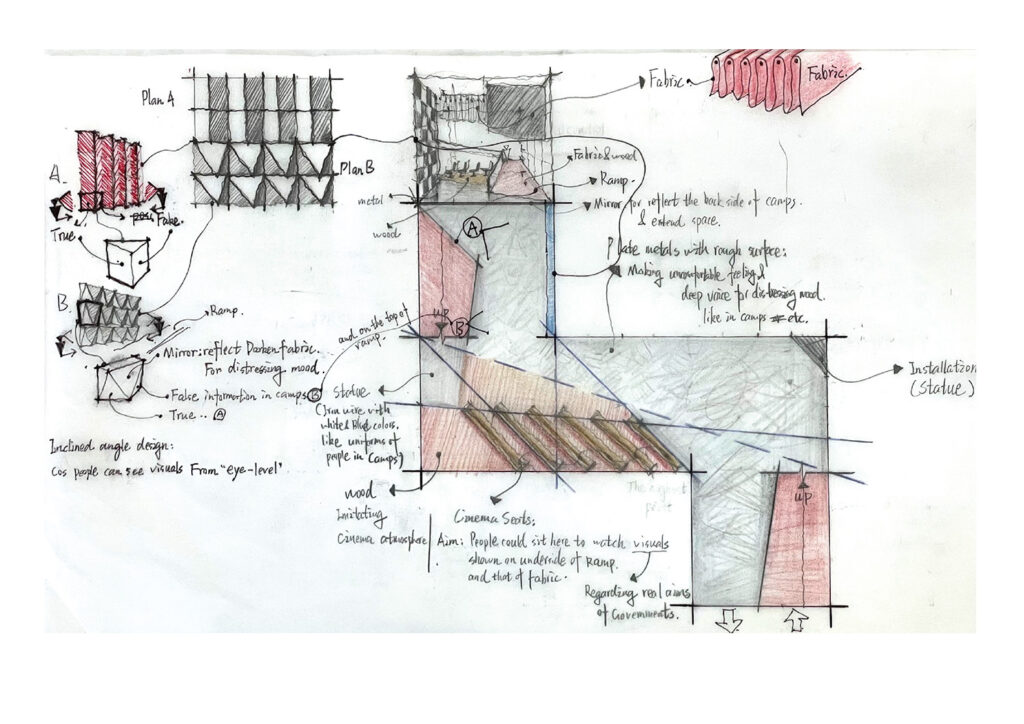 Plan A
Plan B
A.
True
Fake.
B.
Ramp.
Mirror:reflect Darken fabric.
For distressing mood.
False informtion in camps B
True .. A
Inclined angle design:
Cos people can see visuals From "eye-level"
Fabric.
Fabric.
Fabric & wood
Ramp.
metal
Mirror for reflect the back side of camps.
& extend space.
wood
A
Plate metals with rough surface:
Making uncomfortable feeling &
deep voice for distressing mood.
like in camps etc.
up
B
and on the top of
ramp.
Statue
white & Blue colors.
like uniforms of
people in Camps)
Installation
(Statue)
wood
Imitating
Cinema atmosphere
Cinema Seats;
Aim: People could sit here to watch visuals
shown on underside of Ramp.
and that of fabric.
up
Regarding real aims
of Governments.